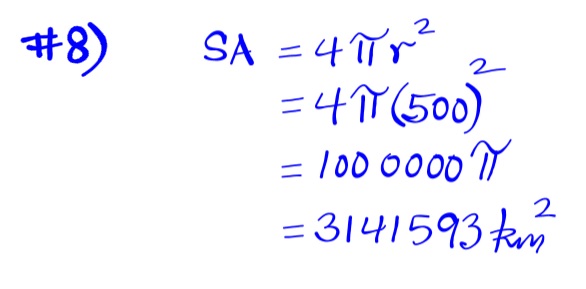 #8) SA = 4πr²
= 4π(500)²
= 100 0000π
= 3141593 km²